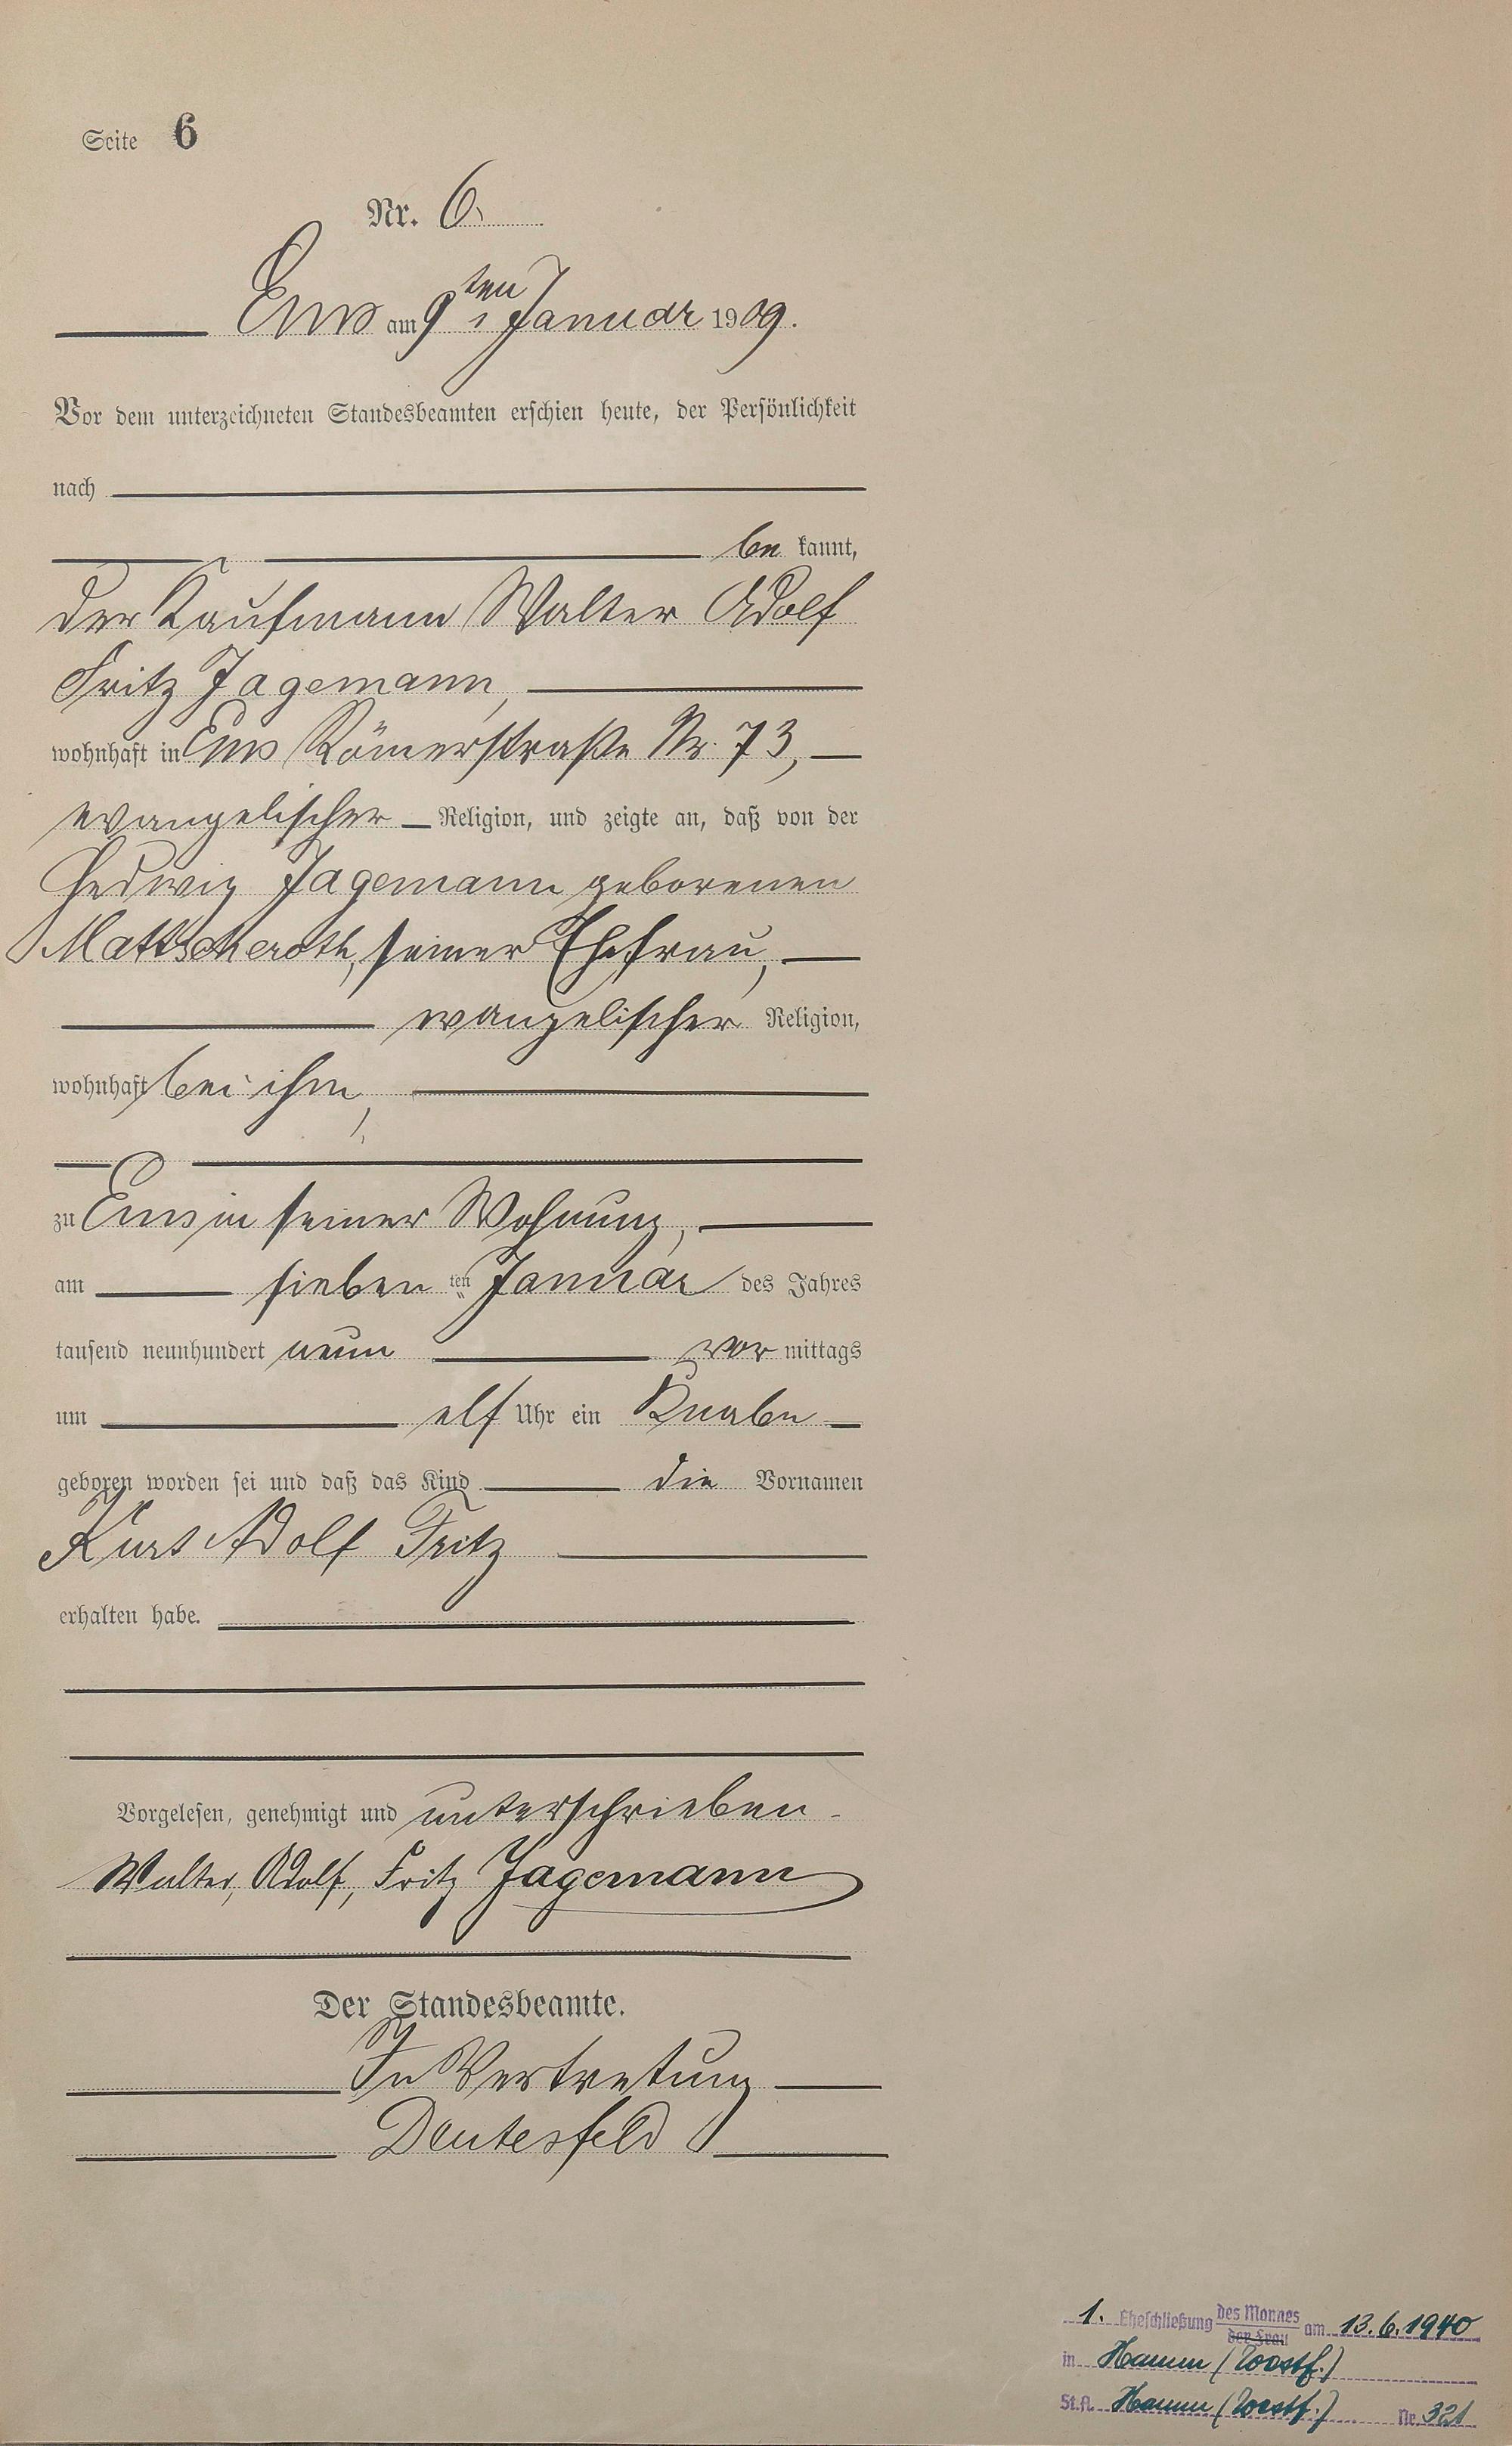 Seite 6
Nr. 6.
Ems am 9ten Januar 1909.
Vor dem unterzeichneten Standesbeamten erschien heute, der Persönlichkeit
nach
be kannt,
der Kaufmann Walter Adolf
Fritz Jagemann,
wohnhaft in Ems Römerstraße Nr. 73,
evangelischer Religion, und zeigte an, daß von der
Hedwig Jagemann geborenen
Mattscheroth, seiner Ehefrau,
evangelischer Religion,
wohnhaft bei ihm,
zu Ems in seiner Wohnung,
am sieben ten Januar des Jahres
tausend neunhundert neun vor mittags
um elf Uhr ein Knabe
geboren worden sei und daß das Kind die Vornamen
Kurt Adolf Fritz
erhalten habe.
Vorgelesen, genehmigt und unterschrieben.
Walter, Adolf, Fritz Jagemann
Der Standesbeamte.
In Vertretung
Deutesfeld
1. Eheschließung des Mannes der Frau am 13.6.1940
in Hamm (Westf.)
St.A. Hamm (Westf.) Nr. 321